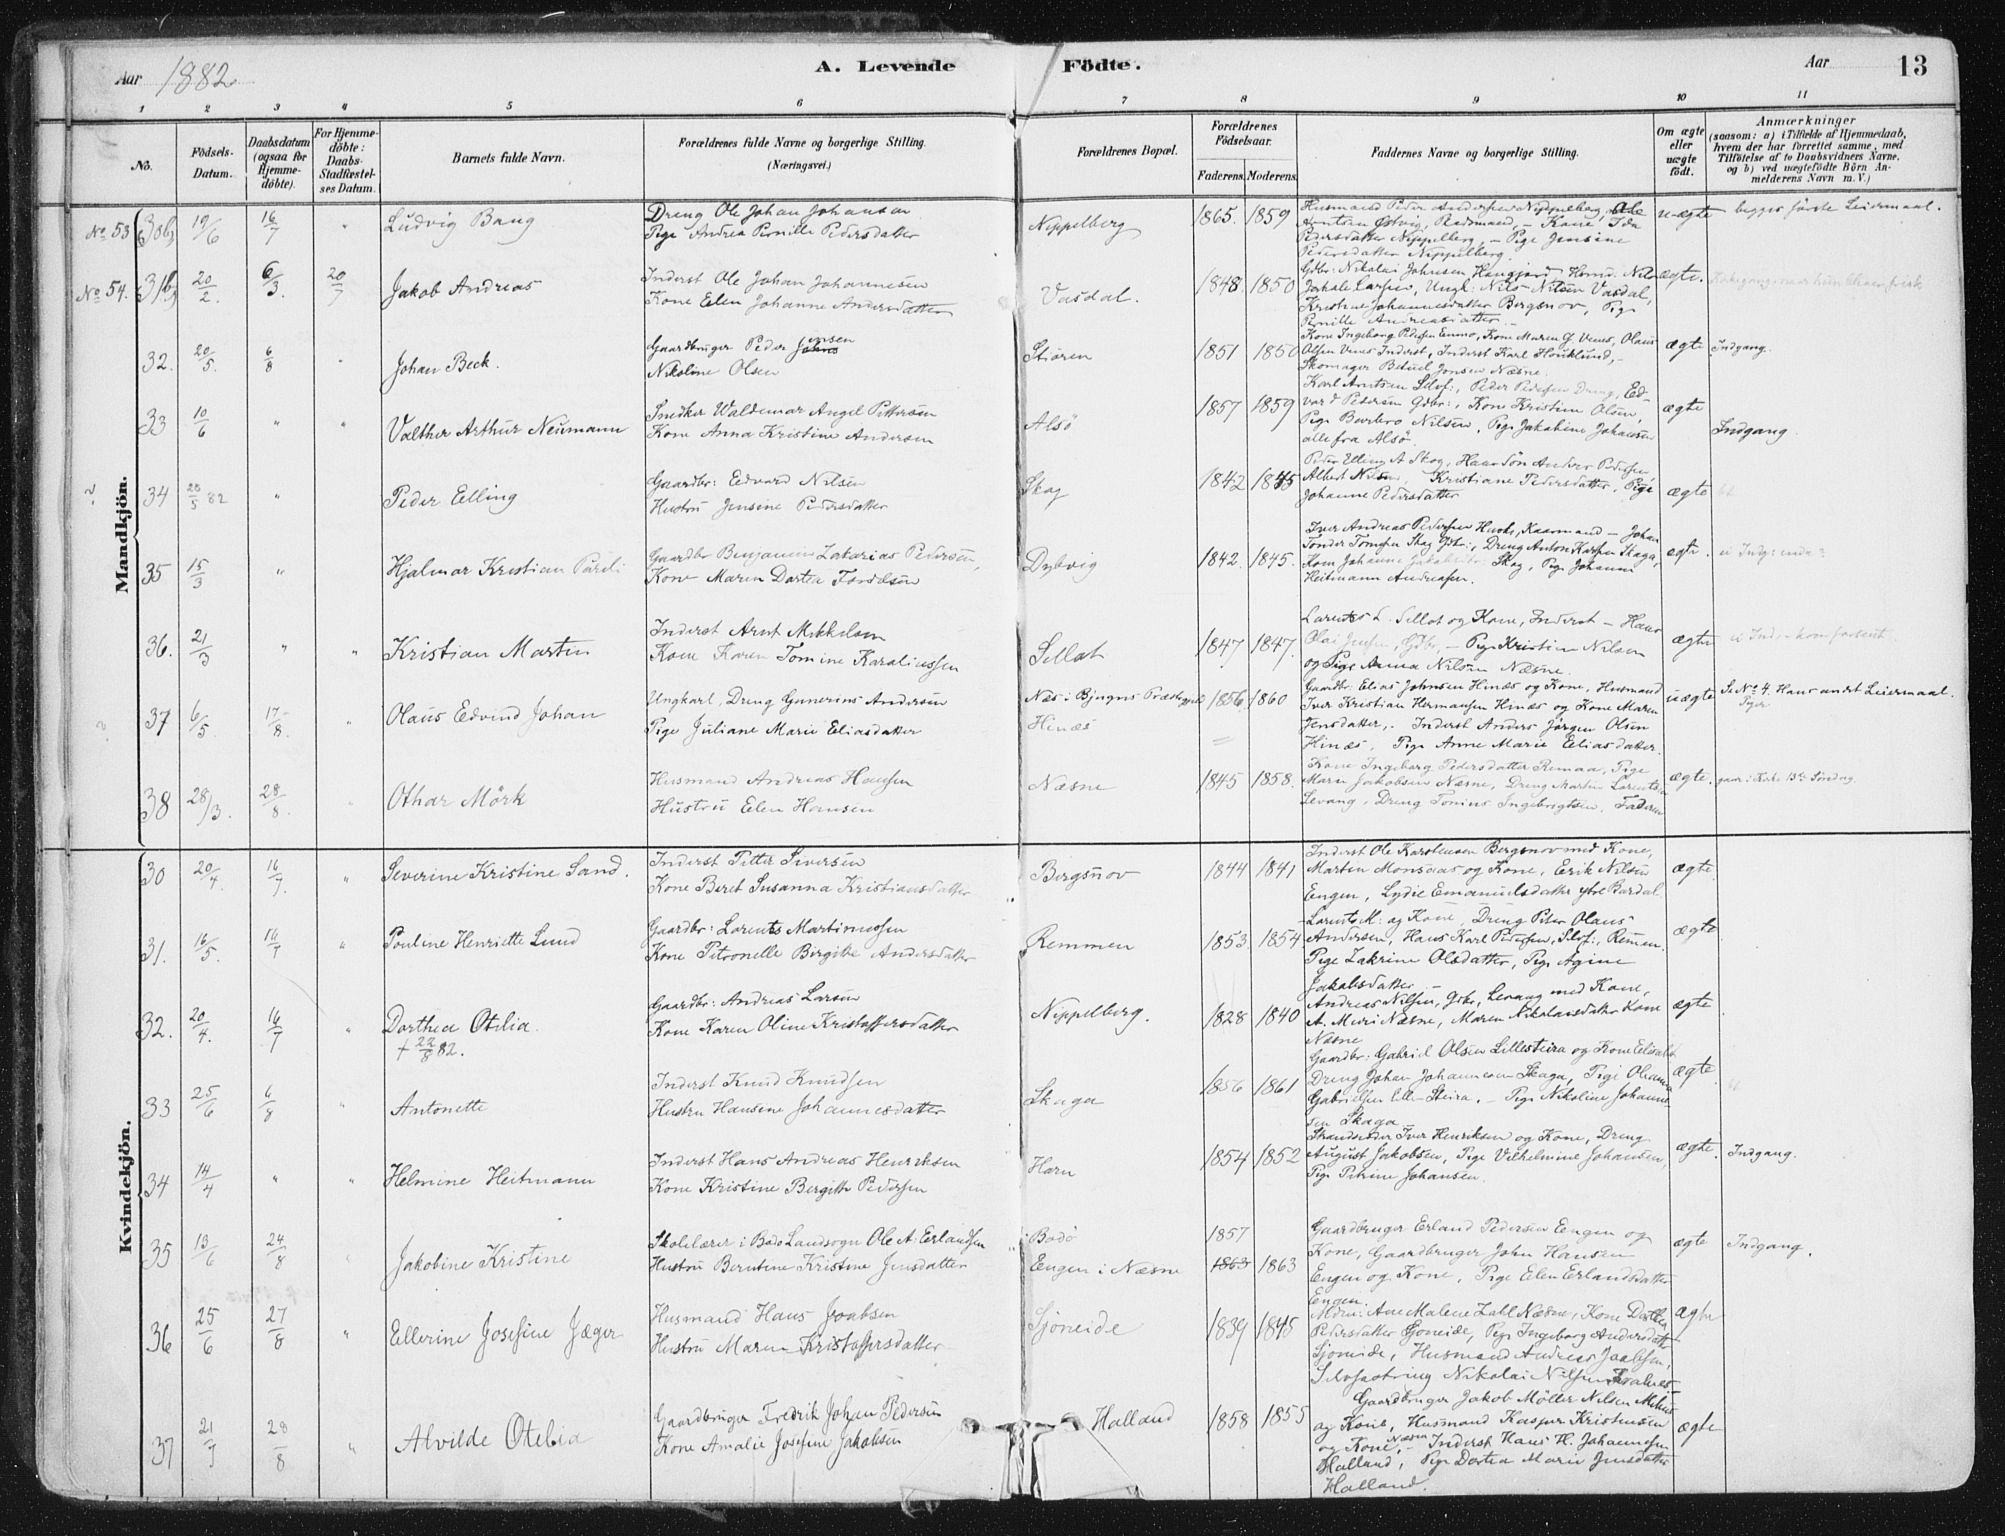 Aar 1882. A. Levende Födte. Aar 13
1 2 3 4 5 6 7 8 9 10 11
No. Födsels-Datum. Daabsdatum (ogsaa for Hjemmedöbte). For Hjemmedöbte: Daabs-Stadfæstelses Datum. Barnets fulde Navn. Forældrenes fulde Navne og borgerlige Stilling. (Næringsvei.) Forældrenes Bopæl. Forældrenes Födselsaar. Faderens. Moderens. Faddernes Navne og borgerlige Stilling. Om ægte eller uægte födt. Anmærkninger (saasom: a) i Tilfælde af Hjemmedaab, hvem der har forrettet samme, med Tilföielse af to Daabsvidners Navne, og b) ved uægtefödte Börn Anmelderens Navn m. V.)
Mandkjön.
No 53 30b 19/6 16/7 " Ludvig Bang
Dreng Ole Johan Johansen
Pige Andrea Pernille Pedersdatter
Nippelberg 1865. 1859
Husmand Peder Andersen Nippelberg,
Östvig, Kone Ida
Pedersdatter Nippelberg, – Pige Jensine
Pedersdatter Nippelberg.
uægte begges første Leiermaal.
No 54. 31b 20/2. 6/3. 20/7 Jakob Andreas
Inderst Ole Johan Johannesen
Kone Elen Johanne Andersdatter
Vasdal. 1848 1850
Gdbr: Nikolai Johnsen Haugjord, Nils
Larsen, Ungk: Nils Nilsen Vasdal,
Kristine Johannesdatter Bergsnov, Pige
Pernille Andreasdatter.
ægte.
32. 20/5. 6/8 " Johan Beck.
Gaardbruger Peder Jensen
Nikoline Olsen
Stioren 1851 1850
Kone Ingeborg Pedersen Enmo, Kone Maren G. Venes, Olaus
Olsen Venes Inderst, Inderst Karl
Skomager Betuel Jonsen Næsne.
ægte Indgang.
33 10/6 " " Valther Arthur Neumann
Snedker Waldemar Angel Pettersen
Kone Anna Kristine Andersen
Alsö 1857 1859
Karl Arntsen Selvf:, Peder Pedersen Dreng, Edvard Petersen Gdbr:, Kone Kristine Olsen,
Pige Barbro Nilsen, Pige Jakobine Johansen
alle fra Alsö.
ægte Indgang.
34 28/5 82 " Peder Elling
Gaardbr: Edvard Nilsen
Hustru Jensine Pedersdatter
Skog 1842 1845
Peder Elling A. Skog, Anders Pedersen,
Albert Nilsen, Kristiane Pedersdatter, Pige
Johanne Pedersdatter
ægte
35 15/3 " Hjalmar Kristian
Gaardbr Benjamin Zakarias Pedersen,
Kone Maren Dortea
Dybvig 1842. 1845.
Iver Andreas Pedersen – Johan
Tönder Tomesen Skog Gdbr:, Dreng Anton Skaga,
Kone Johanne Skog, Pige Johanne
Heitmann Andreasen.
ægte.
36. 21/3 " " Kristian Martin
Inderst Arnt Mikkelsen
Kone Karen Tomine Karoliussen
Sellot 1847 1847.
Larentes L. Sellot og Kone, Inderst – Hans
Olai Jensen, Gdbr, – Pige Kristine Nilsen
og Pige Anna Nilsen Næsne.
ægte
37 6/5 17/8. " Olaus Edvind Johan
Ungkarl, Dreng Gunerius Andersen
Pige Juliane Marie Eliasdatter
Næs i Bjugns Præstegjeld
Hinæs 1856. 1860
Gaardbr: Elias Johnsen Hinæs og Kone, Husmand
Iver Kristian Hermansen Hinæs og Kone Maren
Jensdatter, – Inderst Anders Jørgen Olsen
Hinæs, Pige Anne Marie Eliasdatter.
uægte Se No 4. Hans andet Leiermaal.
38 28/3. 28/8. " Othar Mörk
Husmand Andreas Hansen
Hustru Elen Hansen
Næsne 1845 1858.
Kone Ingeborg Pedersdatter Remaa, Pige
Maren Jakobsen Næsne, Dreng Martin Larentsen
Levang, Dreng Tonius Ingebrigtsen, Faderen
ægte. gaar i Kirke 13de Söndag.
Kvindekjön.
30 20/4. 16/7. " Severine Kristine Sand.
Inderst Petter Siversen
Kone Beret Susanna Kristiansdatter
Bergsnov 1844 1841
Inderst Ole Karstensen Bergsnov med Kone,
Martin Monsaas og Kone, Erik Nilsen
Engen, Lydie Emanuelsdatter ytre Bardal
ægte.
31. 16/5. 16/7 " Pouline Henriette Lund
Gaardbr: Larents Martinussen
Kone Petronelle Birgitte Andersdatter
Remmen 1853. 1854
Larents M: og Kone, Dreng Peter Olaus
Andersen, Hans Karl Pedersen, Selvf:, Remen.
Pige Zakrine Olsdatter, Pige Agine
Jakobsdatter. –
ægte
32. 20/4. 16/7 " Dorthea Otelia.
+ 22/8 82.
Gaardbr: Andreas Larsen
Kone Karen Oline Kristoffersdatter
Nippelberg. 1828 1840
Andreas Nilsen, Gdbr, Levang med Kone,
A. Meri Næsne, Maren Nikolausdatter Kone
Næsne
ægte
33 25/6 6/8 " Antonette
Inderst Knud Knudsen
Hustru Hansine Johannesdatter
Skaga 1856 1861
Gaardbr: Gabriel Olsen Lillesteira og Kone Elisabet
Dreng Johan Johannesen Skaga, Pige Oleanna
Gabrielsen Lille Steira. – Pige Nikoline Johannesen Skaga
ægte
34 14/4 " " Helmine Heitmann
Inderst Hans Andreas Henriksen
Kone Kristine Bergitte Pedersen
Havn 1854 1852
Strandsidder Iver Henriksen og Kone, Dreng
August Jakobsen, Pige Vilhelmine Johansen,
Pige Petrine Johansen.
ægte. Indgang.
35 13/6 24/8 " Jakobine Kristine
Skolelærer i Bodö Landsogn Ole A. Erlandsen
Hustru Berntine Kristine Jensdatter
Bodö
Engen i Næsne 1857 1863 1863
Gaardbruger Erland Pedersen Engen og
Kone, Gaardbruger John Hansen
Engen og Kone, Pige Elen Erlandsdatter
Engen.
ægte Indgang.
36 25/6 27/8 " Ellerine Josefine Jæger
Husmand Hans Joabsen
Hustru Maren Kristoffersdatter
Sjöneide 1839 1845
Mdm: Ane Malene Zahl Næsne, Kone Dorthea
Pedersdatter Sjoneide, Pige Ingeborg Andersdatter
Sjoneide, Husmand Andreas Joabsen,
Selvfostring Nikolai Nilsen
ægte
37 21/7 28/8 " Alvilde Otelia
Gaardbruger Fredrik Johan Pedersen
Kone Amalie Josefine Jakobsen
Halland 1858 1855
Gaardbruger Jakob Möller Nilsen
og Kone, Husmand Kasper Kristensen
og Kone Næsne, – Inderst Hans H. Johannesen
Halland, Pige Dortea Marie Jensdatter
Halland.
ægte